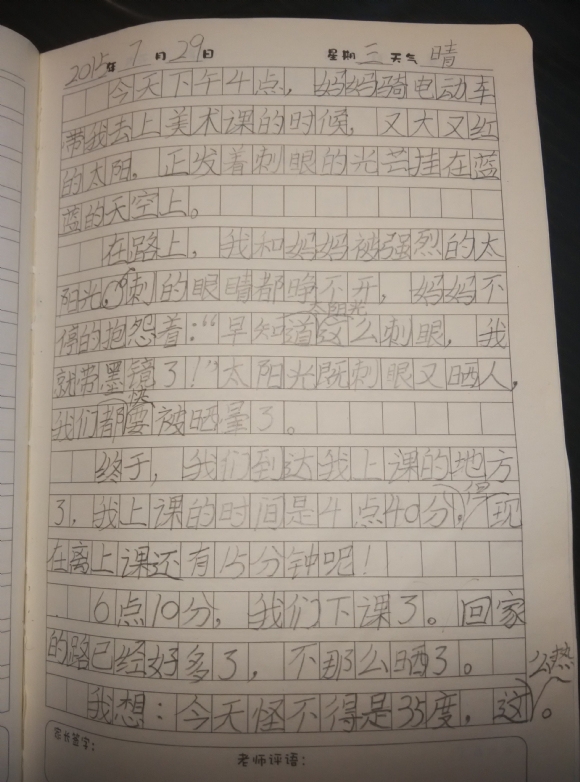 2015年7月29日 星期三天气晴
今天下午4点，妈妈骑电动车
带我去上美术课的时候，又大又红
的太阳，正发着刺眼的光芒挂在蓝
蓝的天空上。
在路上，我和妈妈被强烈的太
阳光，刺的眼睛都睁不开，妈妈不
太阳光
停的抱怨着：“早知道这么刺眼，我
就带墨镜了！”太阳光既刺眼又晒人，
快
我们都要被晒晕了。
终于，我们到达我上课的地方
了，我上课的时间是4点40分，现
在离上课还有15分钟呢！
6点10分，我们下课了。回家
的路已经好多了，不那么晒了。
么热
我想：今天怪不得是35度，这。
家长签字：
老师评语：